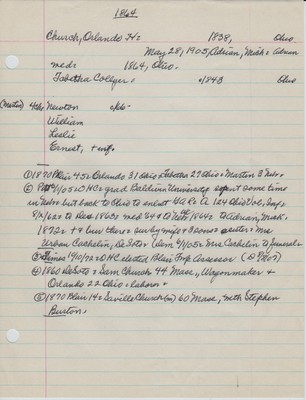 1864
Church, Orlando H= 1838, Ohio
May 28, 1905, Adrian, Mich = Adrian
md= 1864, Ohio.
Tabitha Collyer= c1843 Ohio
4ch, Newton c66-
William
Leslie
Ernest, + inf.
① 1870 Blair 45= Orlando 31 Ohio= Tabitha 27 Ohio= Martin 3 Nebr.
② 9/1/05= OHC= grad Baldwin University spent some time
in Nebr but back to Ohio to enlist Co A 124 Ohio Vol, Inf,
8/2/62= to Dec 1863= md 64 + to Nebr, 1864= to Adrian, Mich.
1872= + + bur there= surv by wife + 3 sons + sister= Mrs
Urban Cashelin, De Soto (item 9/1/05= Mrs Cashelin to funeral=
③ Times 10/02= OHC elected Blair Twp Assessor
④ 1860 De Soto= Sam Church 44 Mass, Wagonmaker +
Orlando 22 Ohio= laborer
⑤ 1870 Blair 14= Saville Church (m) 60 Mass, with Stephen
Burton.